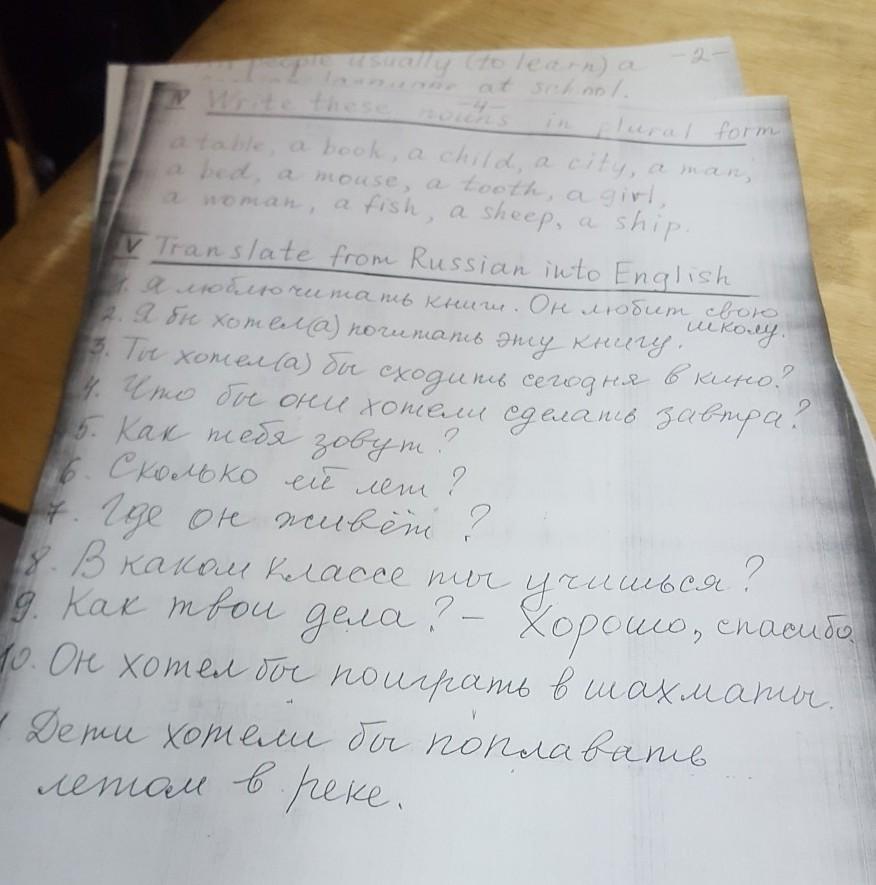 people usually (to learn) a -2-
language at school.
-4-
IV Write these nouns in plural form
a table, a book, a child, a city, a man,
a bed, a mouse, a tooth, a girl,
a woman, a fish, a sheep, a ship.
V Translate from Russian into English
1. Я люблю читать книги. Он любит свою
школу.
2. Я бы хотел(а) почитать эту книгу.
3. Ты хотел(а) бы сходить сегодня в кино?
4. Что бы они хотели сделать завтра?
5. Как тебя зовут?
6. Сколько ей лет?
7. Где он живёт?
8. В каком классе ты учишься?
9. Как твои дела? - Хорошо, спасибо.
10. Он хотел бы поиграть в шахматы.
Дети хотели бы поплавать
летом в реке.